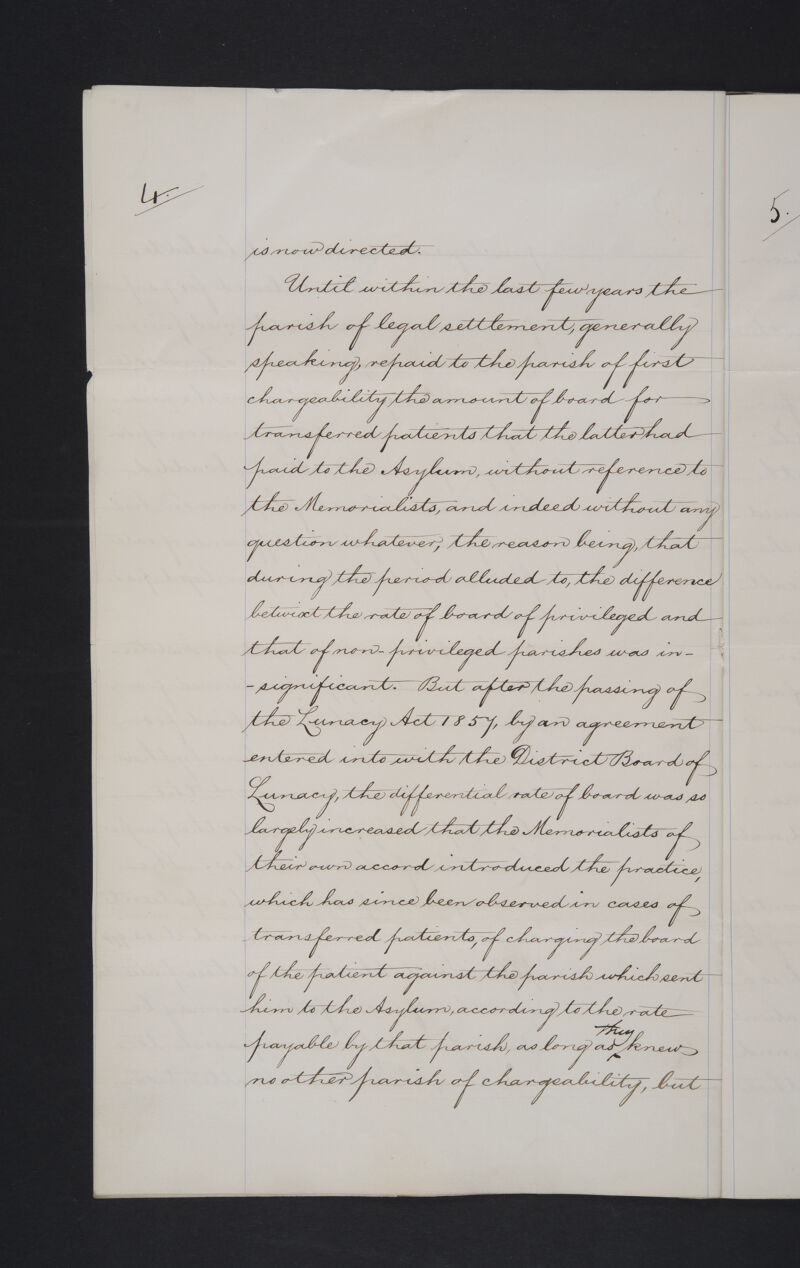 4.
is now directed.
Until within the last few years the
parish of legal settlement, generally
speaking, repaid to the parish of first
chargeability the amount of board for
transferred patients that the latter had
paid to the Asylum, without reference to
the Memorialists, and indeed without any
question whatever, the reason being, that
during the period alluded to, the difference
betwixt the rate of board of privileged and
that of non-privileged parishes was in-
-significant. But after the passing of
the Lunacy Act 1857, by an agreement
entered into with the District Board of
Lunacy, the differential rate of board was so
largely increased that the Memorialists of
their own accord introduced the practice,
which has since been observed in cases of
transferred patients, of charging the board
of the patient against the parish which sent
him to the Asylum, according to the rate
payable by that parish, as long as they knew
no other parish of chargeability, but
5.